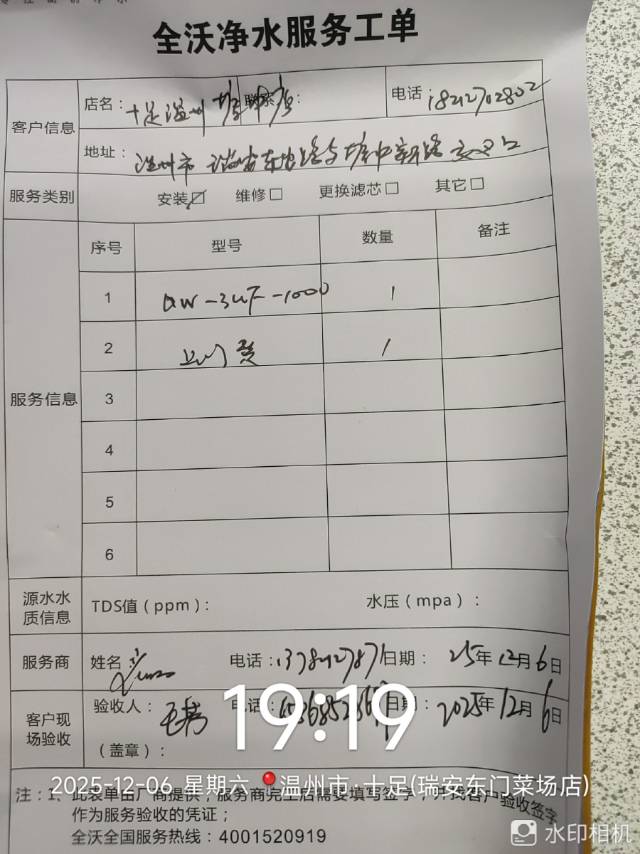 全沃净水服务工单
客户信息
店名: 十足温州 店 联系 电话 18212702802
地址: 温州市 瑞安东 路与
服务类别 安装☑ 维修□ 更换滤芯□ 其它□
服务信息
序号 型号 数量 备注
1 QW-3UF-1000 1
2 1
3
4
5
6
源水水质信息 TDS值(ppm): 水压(mpa):
服务商 姓名 电话: 日期: 25年12月6日
客户现场验收 验收人: 电话: 日期: 2025年12月6日
(盖章):
19:19
2025-12-06 星期六 温州市·十足(瑞安东门菜场店)
注: 1、此表单由厂商提供,服务商完工后需要填写签字,并找客户验收签字
作为服务验收的凭证;
全沃全国服务热线: 4001520919
水印相机